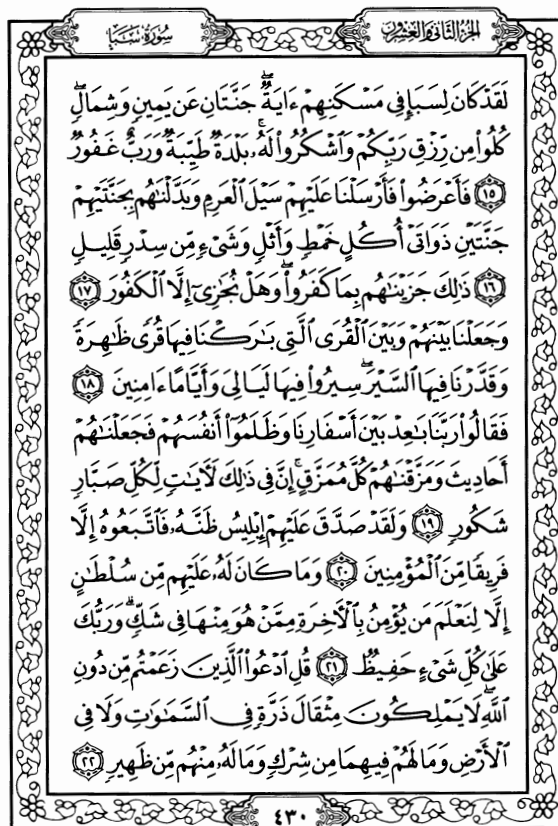 الجزء الثاني والعشرون
سورة سبإ
لَقَدْ كَانَ لِسَبَإٍ فِي مَسْكَنِهِمْ ءَايَةٌۖ جَنَّتَانِ عَن يَمِينٍ وَشِمَالٍۖ
كُلُوا۟ مِن رِّزْقِ رَبِّكُمْ وَٱشْكُرُوا۟ لَهُۥۚ بَلْدَةٌ طَيِّبَةٌ وَرَبٌّ غَفُورٌ
١٥ فَأَعْرَضُوا۟ فَأَرْسَلْنَا عَلَيْهِمْ سَيْلَ ٱلْعَرِمِ وَبَدَّلْنَٰهُم بِجَنَّتَيْهِمْ
جَنَّتَيْنِ ذَوَاتَىْ أُكُلٍ خَمْطٍ وَأَثْلٍ وَشَىْءٍ مِّن سِدْرٍ قَلِيلٍ
١٦ ذَٰلِكَ جَزَيْنَٰهُم بِمَا كَفَرُوا۟ۖ وَهَلْ نُجَٰزِىٓ إِلَّا ٱلْكَفُورَ ١٧
وَجَعَلْنَا بَيْنَهُمْ وَبَيْنَ ٱلْقُرَى ٱلَّتِى بَٰرَكْنَا فِيهَا قُرًى ظَٰهِرَةً
وَقَدَّرْنَا فِيهَا ٱلسَّيْرَۖ سِيرُوا۟ فِيهَا لَيَالِىَ وَأَيَّامًا ءَامِنِينَ ١٨
فَقَالُوا۟ رَبَّنَا بَٰعِدْ بَيْنَ أَسْفَارِنَا وَظَلَمُوٓا۟ أَنفُسَهُمْ فَجَعَلْنَٰهُمْ
أَحَادِيثَ وَمَزَّقْنَٰهُمْ كُلَّ مُمَزَّقٍۚ إِنَّ فِى ذَٰلِكَ لَءَايَٰتٍ لِّكُلِّ صَبَّارٍ
شَكُورٍ ١٩ وَلَقَدْ صَدَّقَ عَلَيْهِمْ إِبْلِيسُ ظَنَّهُۥ فَٱتَّبَعُوهُ إِلَّا
فَرِيقًا مِّنَ ٱلْمُؤْمِنِينَ ٢٠ وَمَا كَانَ لَهُۥ عَلَيْهِم مِّن سُلْطَٰنٍ
إِلَّا لِنَعْلَمَ مَن يُؤْمِنُ بِٱلْءَاخِرَةِ مِمَّنْ هُوَ مِنْهَا فِى شَكٍّۗ وَرَبُّكَ
عَلَىٰ كُلِّ شَىْءٍ حَفِيظٌ ٢١ قُلِ ٱدْعُوا۟ ٱلَّذِينَ زَعَمْتُم مِّن دُونِ
ٱللَّهِۖ لَا يَمْلِكُونَ مِثْقَالَ ذَرَّةٍ فِى ٱلسَّمَٰوَٰتِ وَلَا فِى
ٱلْأَرْضِ وَمَا لَهُمْ فِيهِمَا مِن شِرْكٍ وَمَا لَهُۥ مِنْهُم مِّن ظَهِيرٍ ٢٢
٤٣٠